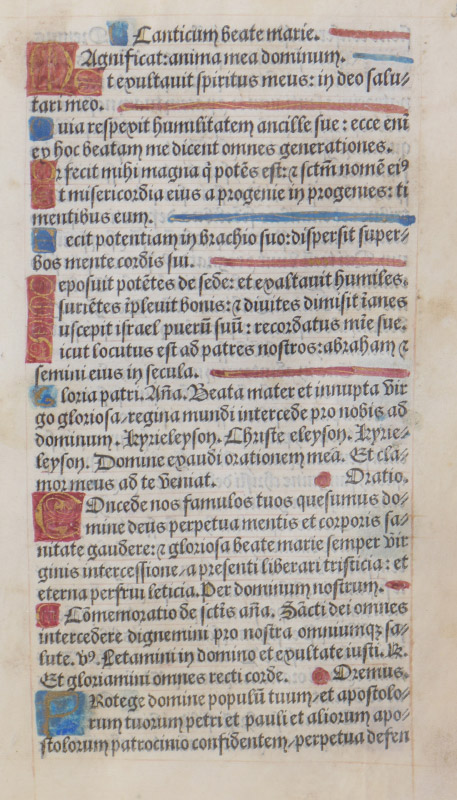 Canticum beate marie.
MAgnificat: anima mea dominum.
Et exultauit spiritus meus: in deo salu-
tari meo.
Quia respexit humilitatem ancille sue: ecce eni
ex hoc beatam me dicent omnes generationes.
Quia fecit mihi magna q̇ potēs est: ⁊ sctm̄ nomē eiꝰ
Et misericordia eius a progenie in progenies: ti
mentibus eum.
Fecit potentiam in brachio suo: dispersit super-
bos mente cordis sui.
Deposuit potētes de sede: et exaltauit humiles.
Esuriētes īpleuit bonis: ⁊ diuites dimisit īanes
Suscepit israel puerū suū: recordatus mīe sue.
Sicut locutus est ad patres nostros: abraham ⁊
semini eius in secula.
Gloria patri. Aña. Beata mater et innupta vir
go gloriosa/ regina mundi intercede pro nobis ad
dominum. Kyrieleyson. Christe eleyson. Kyrie-
leyson. Domine exaudi orationem meā. Et cla-
mor meus ad te veniat. Oratio.
COncede nos famulos tuos quesumus do-
mine deus perpetua mentis et corporis sa-
nitate gaudere: ⁊ gloriosa beate marie semper vir
ginis intercessione/ a presenti liberari tristicia: et
eterna perfrui leticia. Per dominum nostrum.
Cōmemoratio de sctīs aña. Sācti dei omnes
intercedere dignemini pro nostra omniumqꝫ sa-
lute. ℣. Letamini in domino et exultate iusti. ℟.
Et gloriamini omnes recti corde. Oremus.
PRotege domine populū tuum/ et apostolo-
rum tuorum petri et pauli et aliorum apo-
stolorum patrocinio confidentem/ perpetua defen